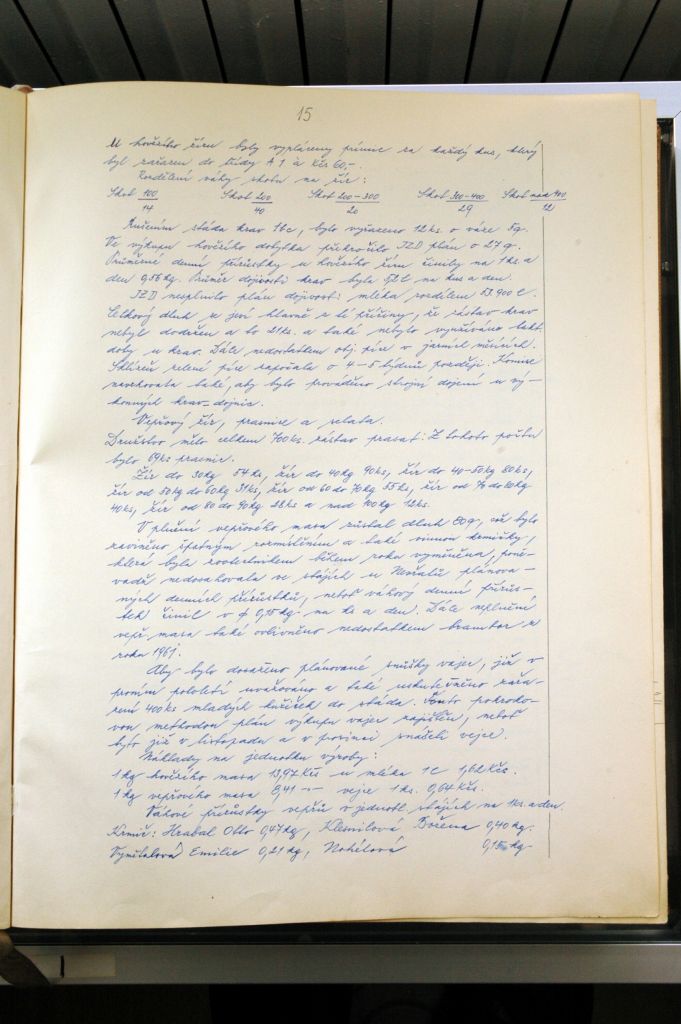 15
U hovězího žíru byly vypláceny prémie za každý kus, který
byl zařazen do třídy A 1 à Kčs 60,-.
Rozdělení váhy skotu na žír:
Skot 100 Skot 200 Skot 200-300 Skot 300-400 Skot nad 400
14 40 20 29 12
stáda krav 16c, bylo vyřazeno 12 ks. o váze 5q.
Ve výkupu hovězího dobytka překročilo JZD plán o 27 q.
Průměrné denní přírůstky u hovězího žíru činily na 1 ks. a
den 0,56 kg. Průměr dojivosti krav byla l na kus a den.
JZD nesplnilo plán dojivosti mléka rozdílem 53.900 l.
Celkový dluh se jeví hlavně z té příčiny, že zástav krav
nebyl dodržen a to 21 ks. a také nebylo využíváno lakt.
doby u krav. Dále nedostatkem obj. píce v jarních měsících.
Sklizeň zelené píce započala o 4-5 týdnů později. Komise
navrhovala také, aby bylo prováděno strojní dojení u vý-
konných krav-dojnic.
Vepřový žír, prasnice a selata.
Družstvo mělo celkem 760 ks. zástav prasat. Z tohoto počtu
bylo 64 ks prasnic.
Žír do 30 kg 54 ks, žír do 40 kg 90 ks, žír do 40-50 kg 80 ks,
žír od 50 kg do 60 kg 31 ks, žír od 60 do 70 kg 55 ks, žír od 70 do 80 kg
40 ks, žír od 80 do 90 kg 28 ks a nad 100 kg 12 ks.
V plnění vepřového masa zůstal dluh 80 q, což bylo
zaviněno špatným rozmístěním a také vinnou krmičky,
která byla rozvrtníkem během roku vyměněna, poně-
vadž nedosahovala ve stájích u plánova-
ných denních přírůstků, neboť váhový denní přírůs-
tek činil v ϕ 0,15 kg na ks a den. Dále neplnění
vepř. masa také ovlivněno nedostatkem brambor z
roku 1961.
Aby bylo dosaženo plánované snůšky vajec, již v
prvním pololetí uvažováno a také uskutečněno zařa-
zení 400 ks mladých kuřiček do stáda. Touto pokroko-
vou methodou plán výkupu vajec zajištěn, neboť
byto již v listopadu a v prosinci snášeli vejce.
Náklady na jednotku výroby:
1 kg hovězího masa 13,97 Kčs u mléka 1 l 1,62 Kčs.
1 kg vepřového masa 8,41 -"- vejce 1 ks. 0,64 Kčs.
Váhové přírůstky vepřů v jednotl. stájích na 1 ks. a den.
Krmič: Hrabal Otto 0,47 kg, Klesnilová Božena 0,40 kg.
Vymětalová Emilie 0,21 kg, Nohélová 0,15 kg